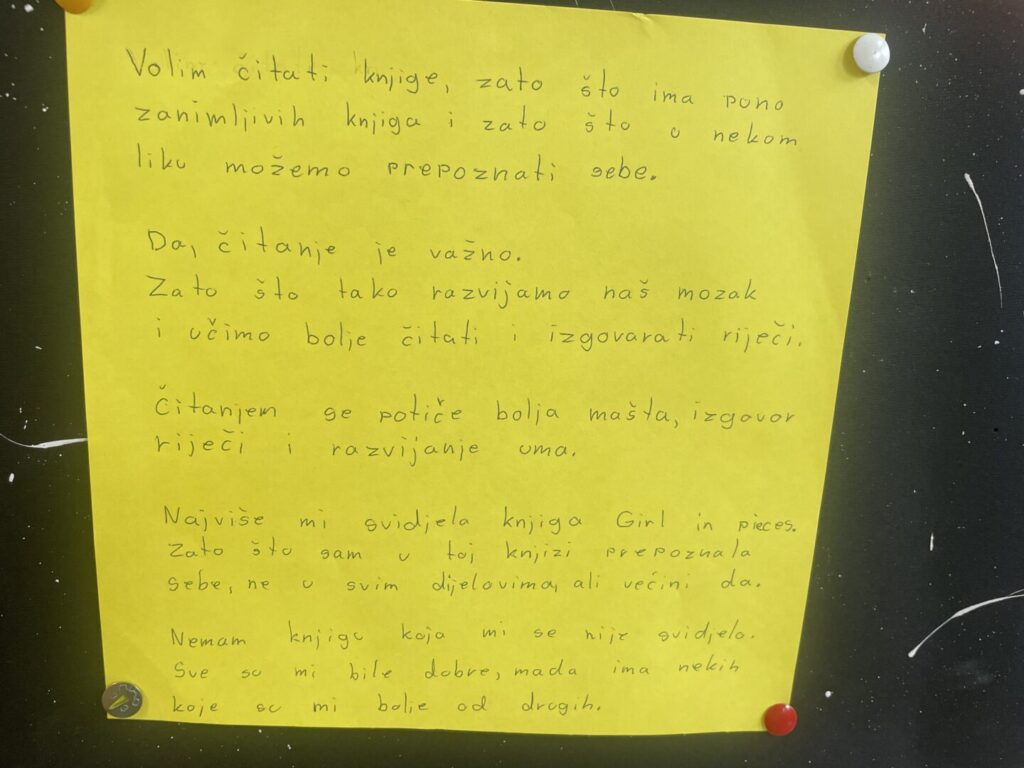 Volim čitati knjige, zato što ima puno
zanimljivih knjiga i zato što u nekom
liku možemo prepoznati sebe.
Da, čitanje je važno.
Zato što tako razvijamo naš mozak
i učimo bolje čitati i izgovarati riječi.
Čitanjem se potiče bolja mašta, izgovor
riječi i razvijanje uma.
Najviše mi svidjela knjiga Girl in pieces.
Zato što sam u toj knjizi prepoznala
sebe, ne u svim dijelovima, ali većini da.
Nemam knjigu koja mi se nije svidjela.
Sve su mi bile dobre, mada ima nekih
koje su mi bolje od drugih.